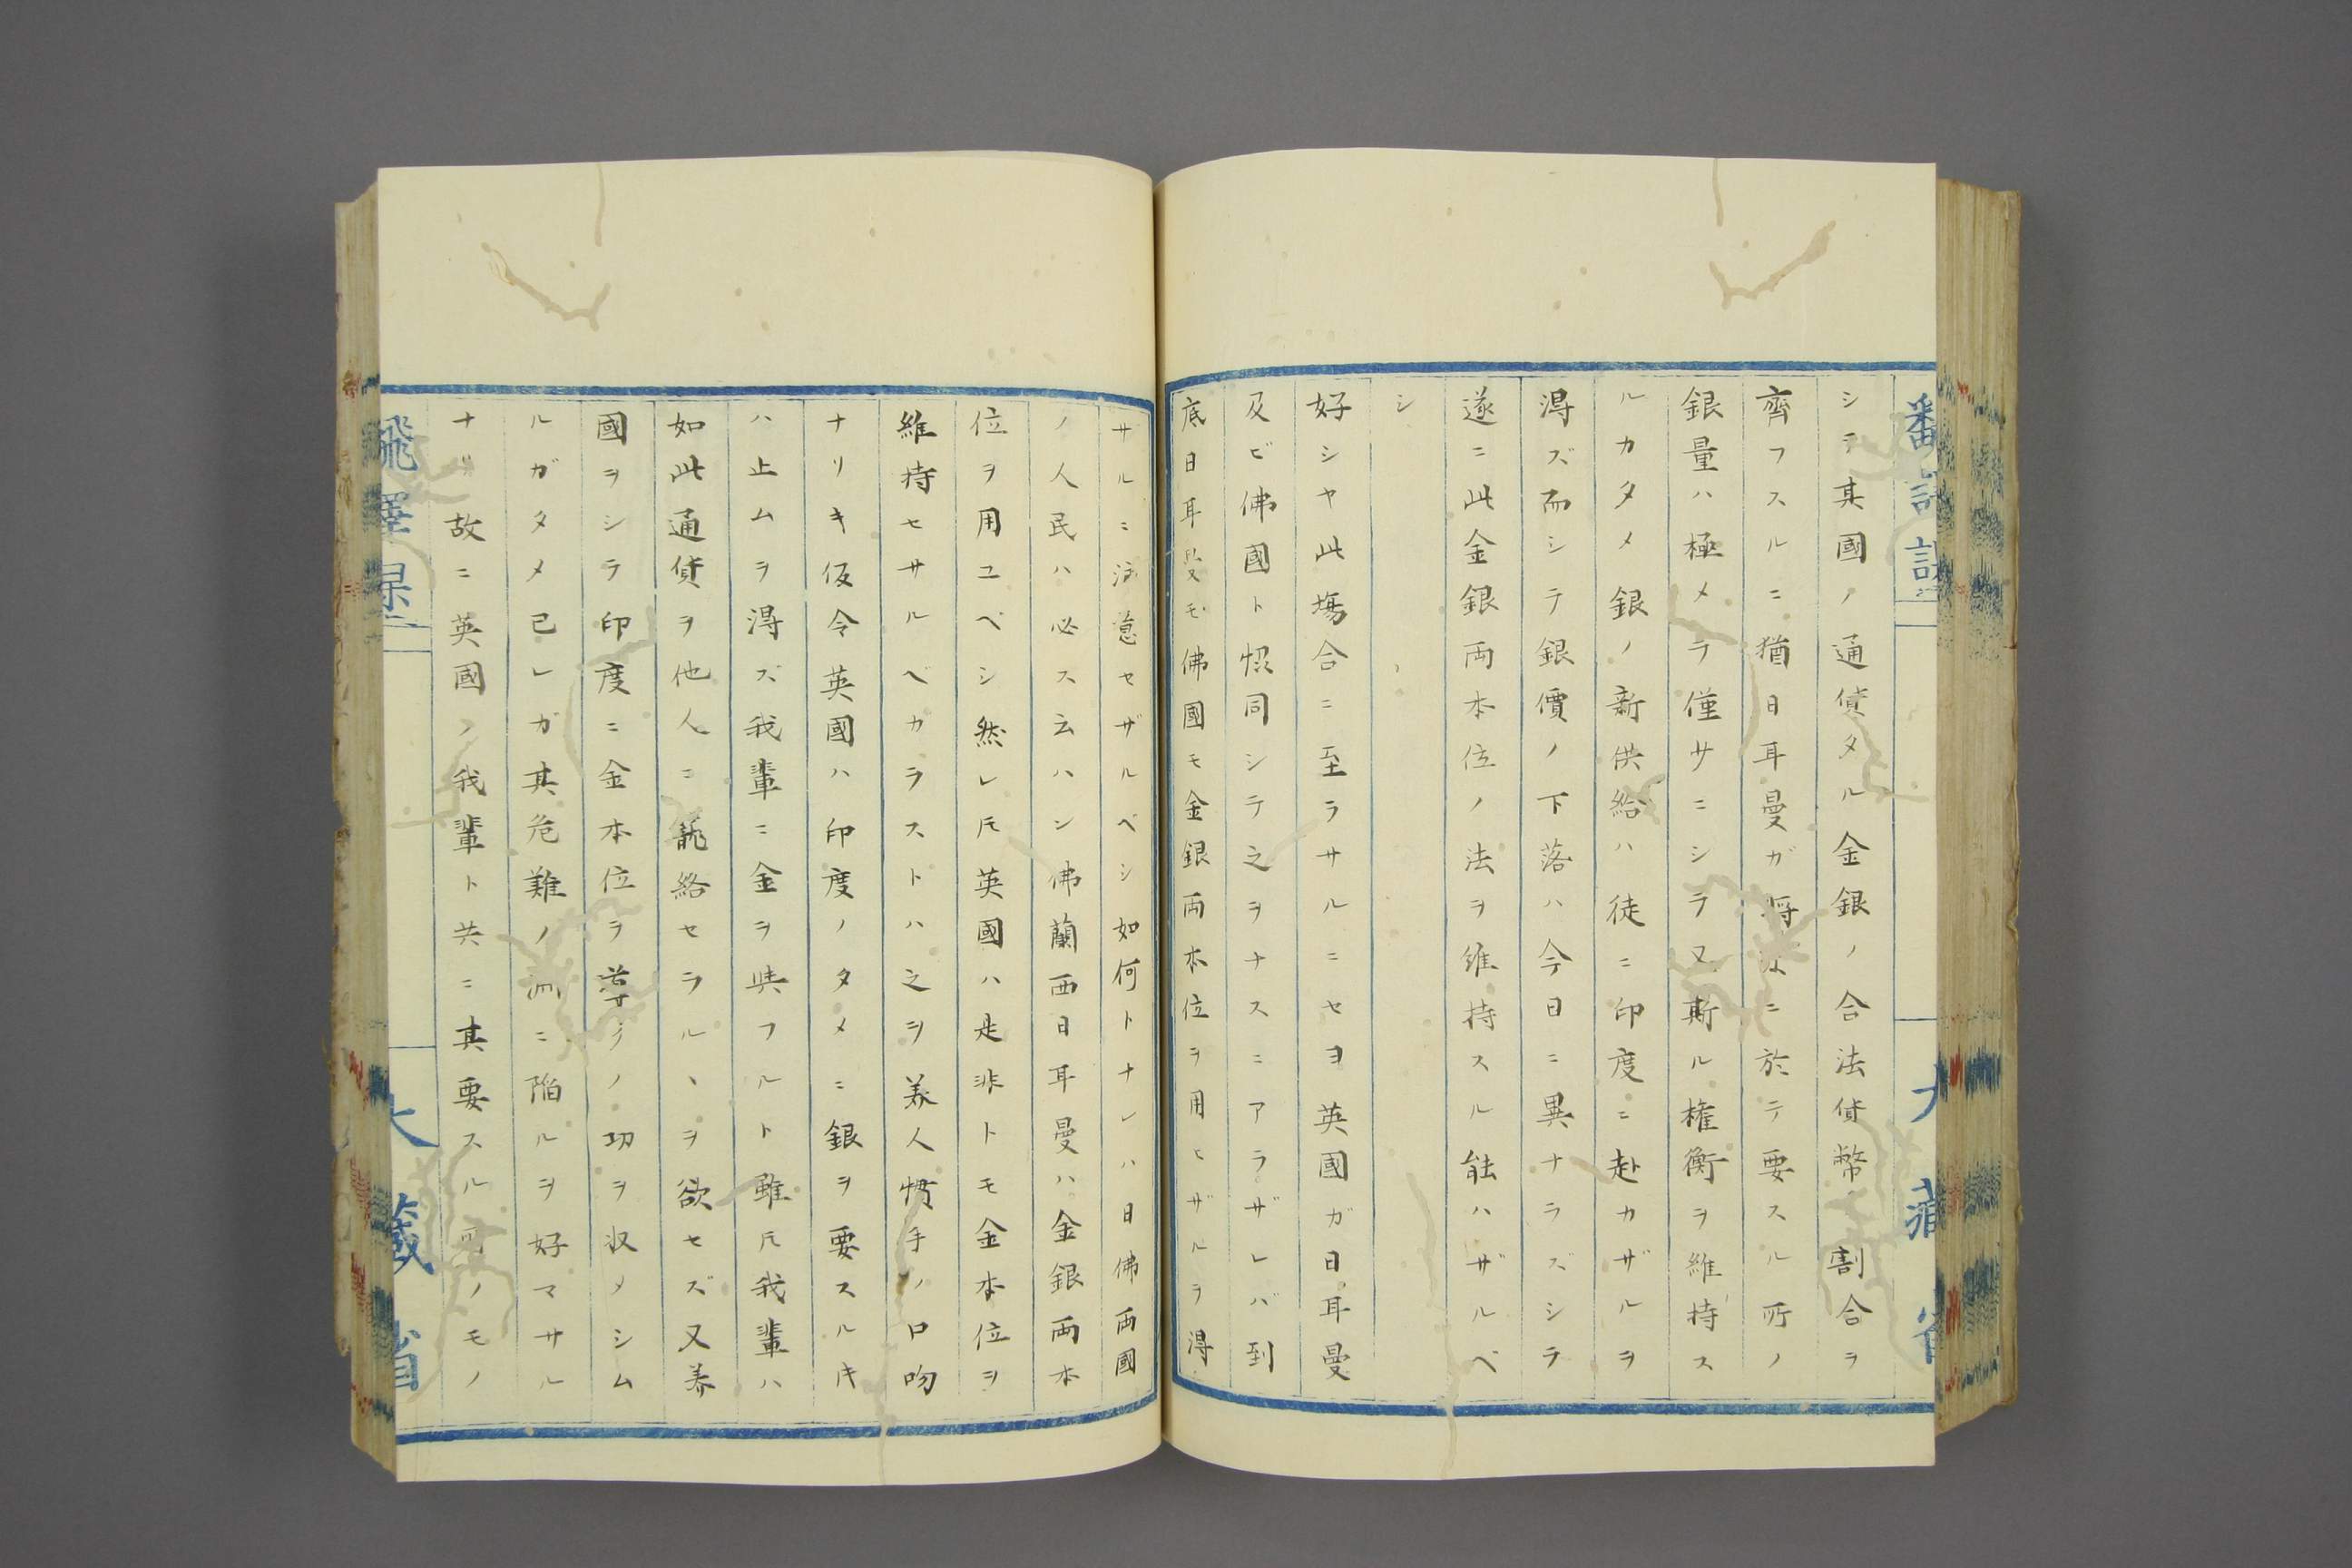 シテ其國ノ通貨タル金銀ノ合法貨幣ノ割合ヲ
齊フスルニ猶日耳曼ガ將ニ於テ要スル所ノ
銀量ハ極メテ僅サニシテ又斯ル権衡ヲ維持ス
ルカタメ銀ノ新供給ハ徒ニ印度ニ赴カザルヲ
得ズ而シテ銀價ノ下落ハ今日ニ異ナラズシテ
遂ニ此金銀両本位ノ法ヲ維持スル能ハザルベ
シ
好シヤ此塲合ニ至ラサルニセヨ英國ガ日耳曼
及ビ佛國ト恊同シテ之ヲナスニアラザレバ到
底日耳曼モ佛國モ金銀両本位ヲ用ヒザルヲ得
サルニ決意セザルベシ如何トナレハ日佛両國
ノ人民ハ必ス云ハン佛蘭西日耳曼ハ金銀両本
位ヲ用ユベシ然レ𪜈英國ハ是非トモ金本位ヲ
維持セサルベカラストハ之ヲ美人慣手ノ口吻
ナリキ仮令英國ハ印度ノタメニ銀ヲ要スルキ
ハ止ムヲ得ズ我輩ニ金ヲ與フルト雖𪜈我輩ハ
如此通貨ヲ他人ニ籠絡セラルヽヲ欲セズ又美
國ヲシテ印度ニ金本位ヲノ功ヲ収メシム
ルガタメ己レガ其危難ノニ陥ルヲ好マサル
ナリ故ニ英國ノ我輩ト共ニ其要スル所ノモノ
大藏省
大藏省